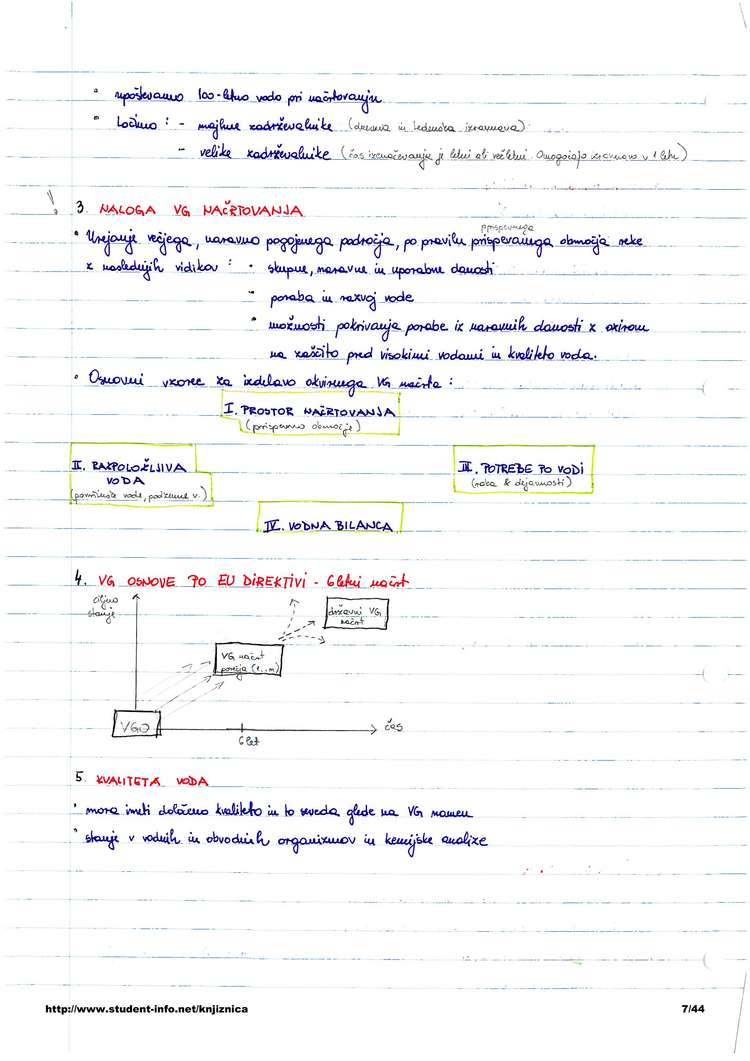 • upoštevamo 100-letno vodo pri načrtovanju
• Ločimo : - majhne zadrževalnike (dnevna in tedenska izravnava)
- velike zadrževalnike (čas izenačevanja je letni ali večletni. Omogočajo izravnavo v 1 letu)
! 3. NALOGA VG NAČRTOVANJA
prispevnega
• Urejanje večjega, naravno pogojenega področja, po pravilu prispevanega območja reke
z naslednjih vidikov : • skupne, naravne in uporabne danosti
• poraba in razvoj vode
• možnosti pokrivanja porabe iz naravnih danosti z ozirom
na zaščito pred visokimi vodami in kvaliteto voda.
• Osnovni vzorec za izdelavo okvirnega VG načrta :
I. PROSTOR NAČRTOVANJA
(prispevno območje)
II. RAZPOLOŽLJIVA
VODA
(površinske vode, podzemne v.)
III. POTREBE PO VODI
(raba & dejavnosti)
IV. VODNA BILANCA
4. VG OSNOVE PO EU DIREKTIVI - 6 letni načrt
ciljno
stanje
državni VG
načrt
VG načrt
porečja (1...n)
VGO
čas
6 let
5. KVALITETA VODA
• mora imeti določeno kvaliteto in to seveda glede na VG namen
• stanje v vodnih in obvodnih organizmov in kemijske analize
http://www.student-info.net/knjiznica
7/44